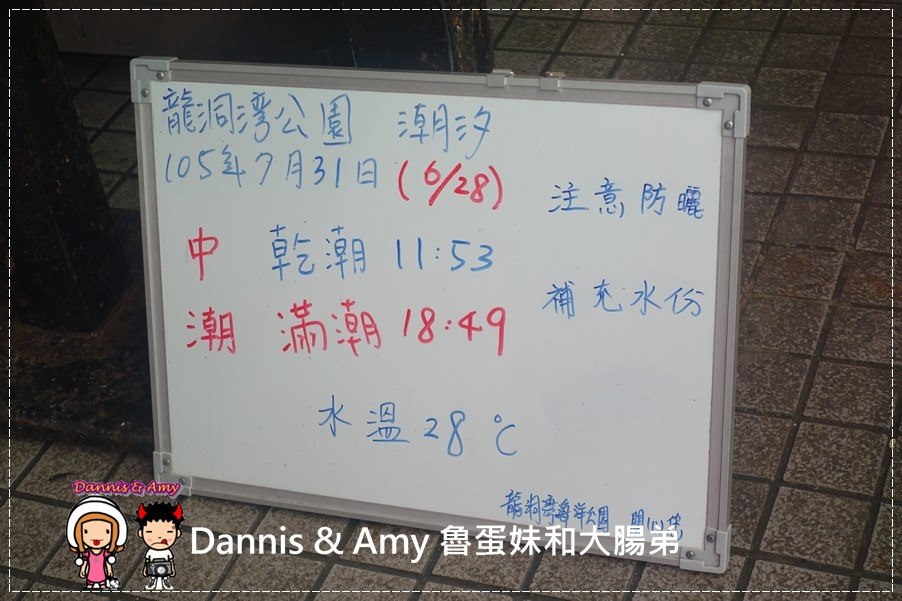 龍洞湾公園 潮汐
105年7月31日 (6/28)
注意防曬
中 乾潮 11:53
補充水份
潮 滿潮 18:49
水溫 28 ℃
龍洞湾海洋公園 關心您
Dannis & Amy
Dannis & Amy 魯蛋妹和大腸弟